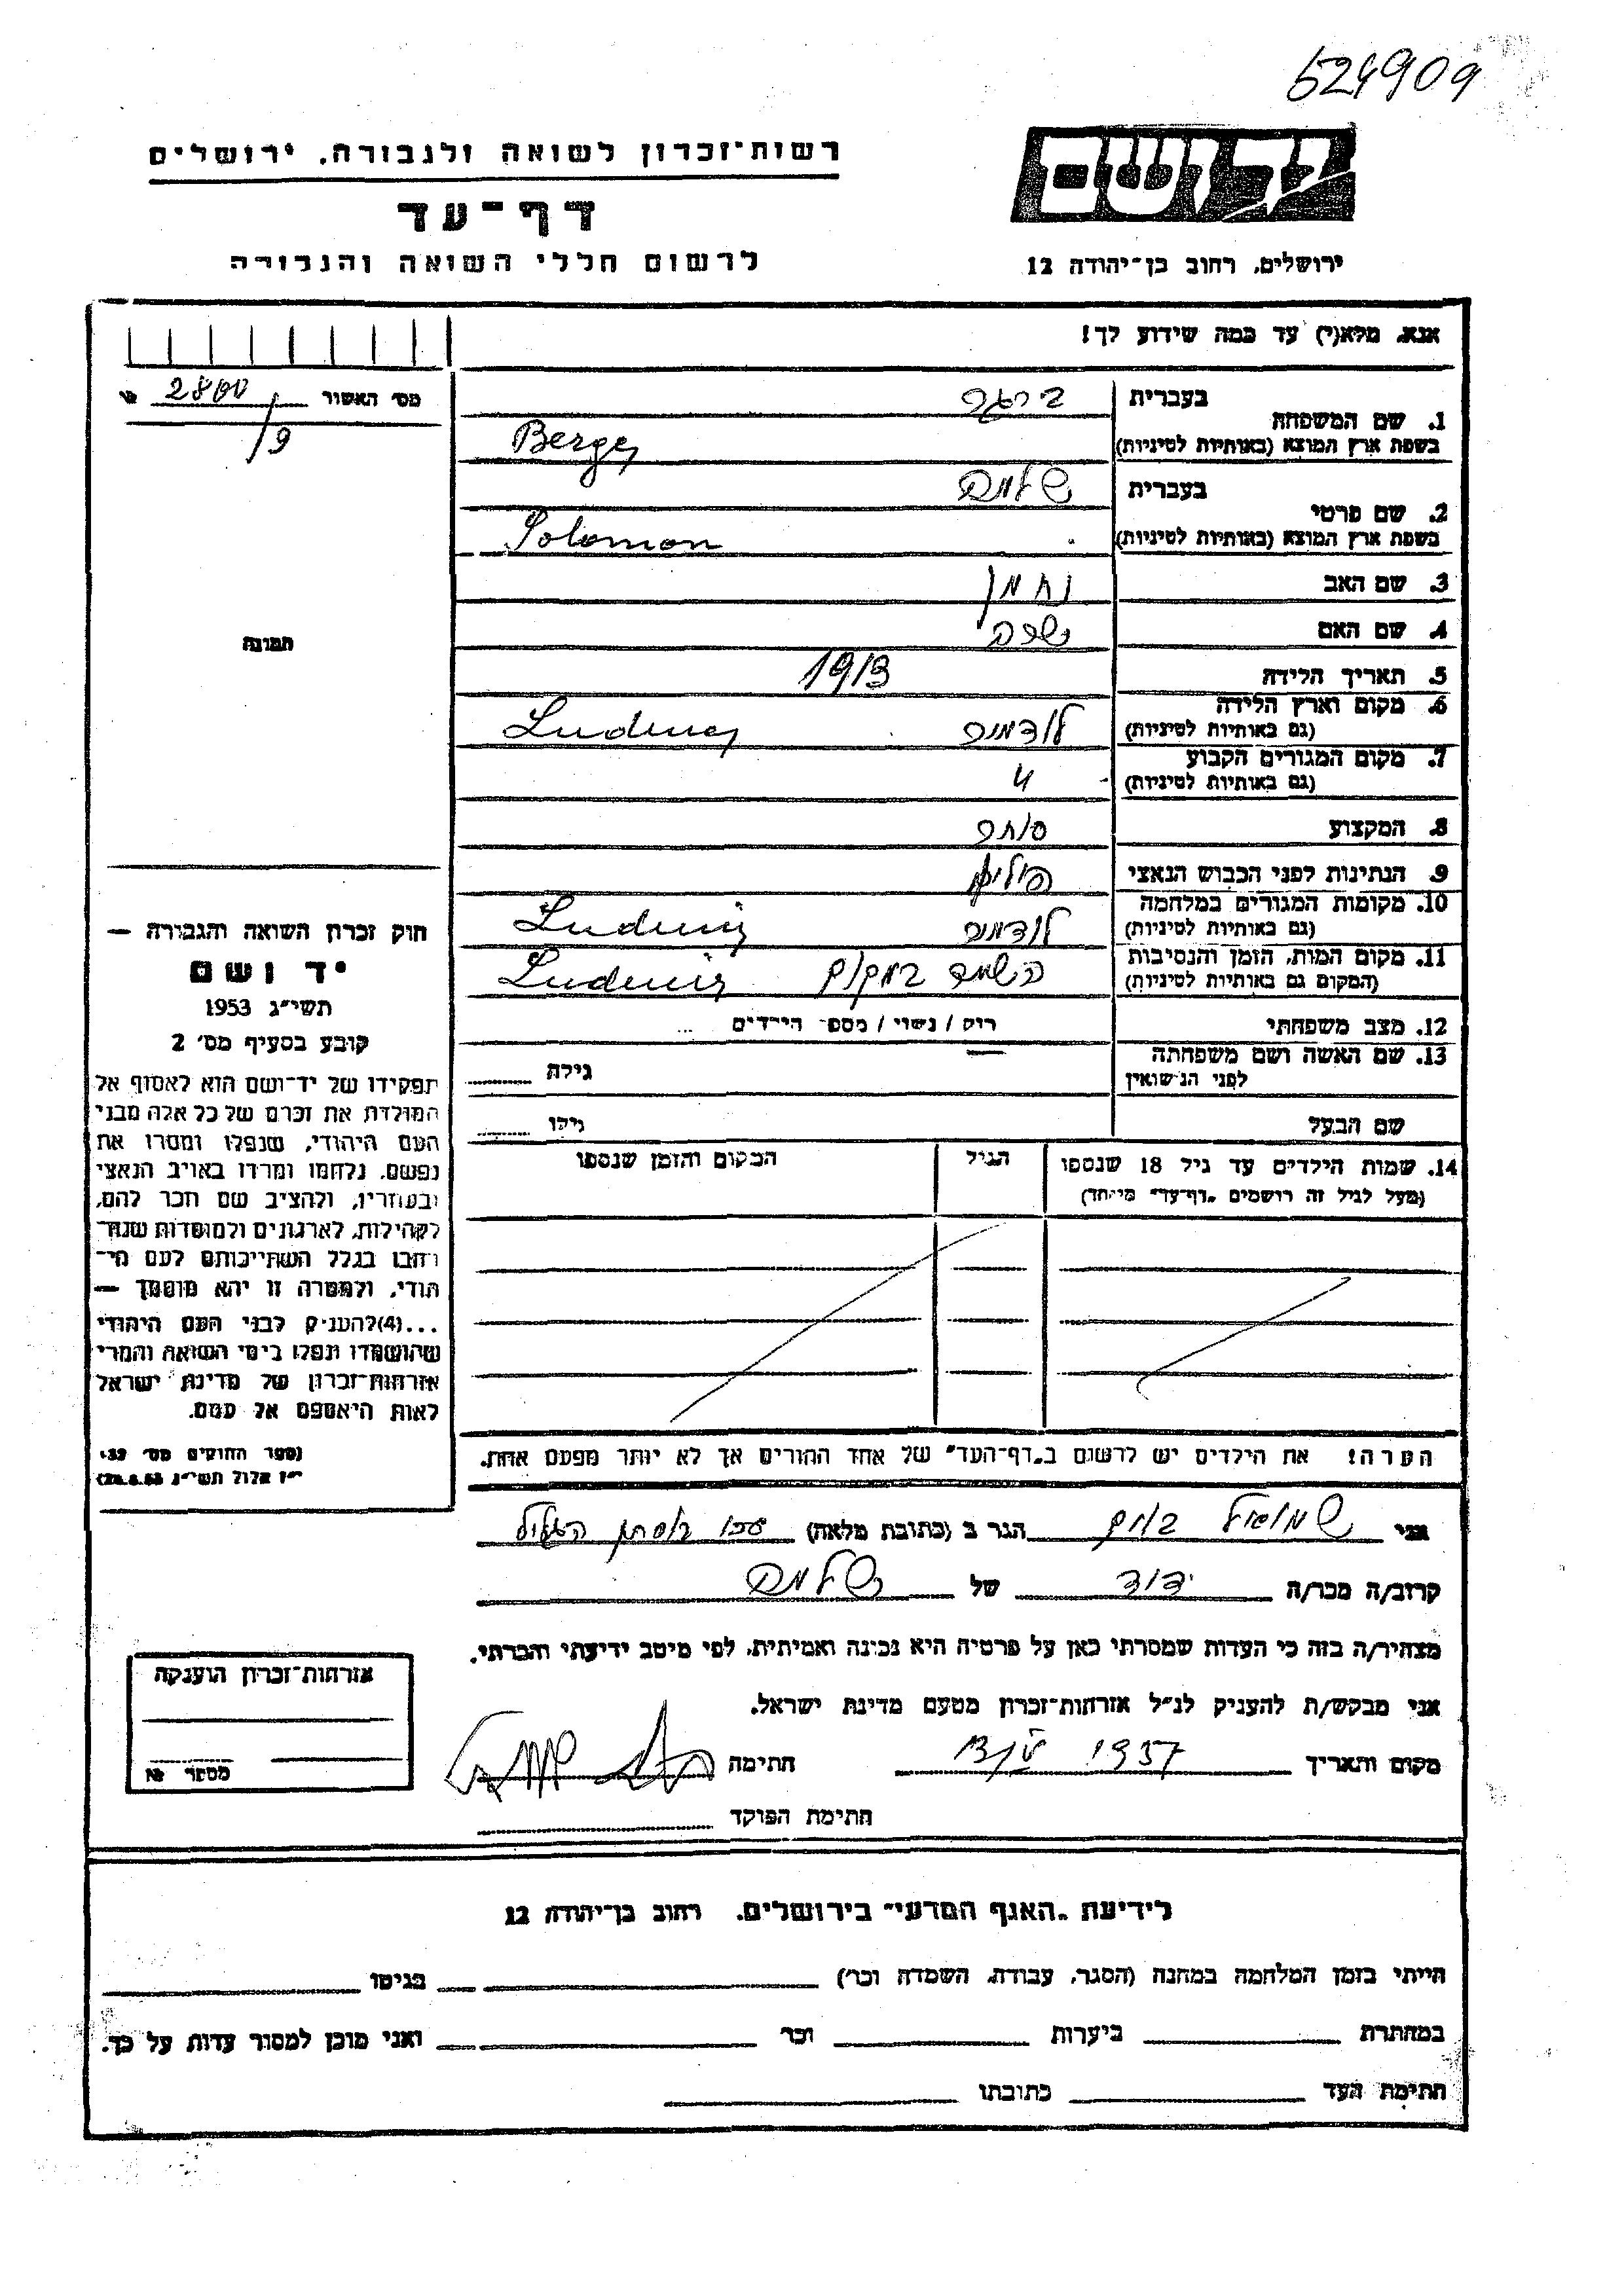 524909
רשות־זכרון לשואה ולגבורה. ירושלים
דף־עד
לרשום חללי השואה והגבורה
יד ושם
ירושלים, רחוב בן־יהודה 12
אנא, מלא(י) עד כמה שידוע לך!
מס׳ האשור 2800
/9
תמונה
1. שם המשפחה בעברית ברגר
בשפת ארץ המוצא (באותיות לטיניות) Berger
2. שם פרטי בעברית שלמה
בשפת ארץ המוצא (באותיות לטיניות) Solomon
3. שם האב נחמן
4. שם האם
5. תאריך הלידה 1913
6. מקום וארץ הלידה
(גם באותיות לטיניות) לודמיר
7. מקום המגורים הקבוע
(גם באותיות לטיניות) "
8. המקצוע סוחר
9. הנתינות לפני הכבוש הנאצי
10. מקומות המגורים במלחמה
(גם באותיות לטיניות) לודמיר
11. מקום המות, הזמן והנסיבות
(המקום גם באותיות לטיניות) במקום
12. מצב משפחתי רווק / נשוי / מספר הילדים ...
13. שם האשה ושם משפחתה
לפני הנישואין גילה
שם הבעל גילו
14. שמות הילדים עד גיל 18 שנספו הגיל המקום והזמן שנספו
(מעל לגיל זה רושמים „דף־עד" מיוחד)
הערה! את הילדים יש לרשום ב„דף־העד" של אחד ההורים אך לא יותר מפעם אחת.
חוק זכרון השואה והגבורה —
יד ושם
תשי״ג 1953
קובע בסעיף מס׳ 2
תפקידו של יד־ושם הוא לאסוף אל
המולדת את זכרם של כל אלה מבני
העם היהודי, שנפלו ומסרו את
נפשם, נלחמו ומרדו באויב הנאצי
ובעוזריו, ולהציב שם וזכר להם,
לקהילות, לארגונים ולמוסדות שנח־
רבו בגלל השתייכותם לעם הי־
הודי, ולמטרה זו יהא מוסמך —
...(4)להעניק לבני העם היהודי
שהושמדו ונפלו בימי השואה והמרי
אזרחות־זכרון של מדינת ישראל
לאות היאספם אל עמם.
(ספר החוקים מס׳ 132
י״ז אלול תשי״ג 28.8.53)
אני שמואל הגר ב (כתובת מלאה) הגליל
קרוב/ה מכר/ה ידיד של שלמה
מצהיר/ה בזה כי העדות שמסרתי כאן על פרטיה היא נכונה ואמיתית, לפי מיטב ידיעתי והכרתי.
אני מבקש/ת להעניק לנ״ל אזרחות־זכרון מטעם מדינת ישראל.
מקום ותאריך 1957 חתימה
חתימת הפוקד
אזרחות־זכרון הוענקה
מספר №
לידיעת „האגף המדעי" בירושלים, רחוב בן־יהודה 12
הייתי בזמן המלחמה במחנה (הסגר, עבודה, השמדה וכו׳) בגיטו
במחתרת ביערות וכו׳ ואני מוכן למסור עדות על כך.
חתימת העד כתובתו